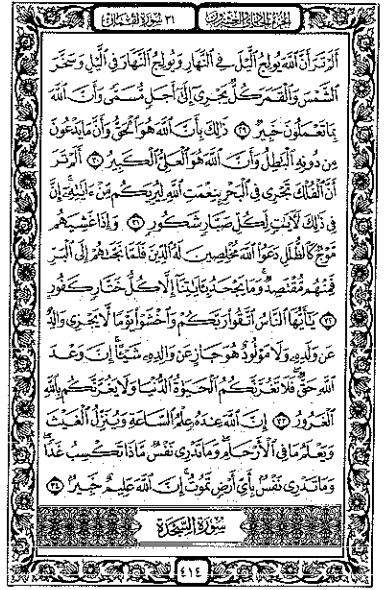 الجزء الحادي والعشرون ٣١ سورة لقمان
أَلَمْ تَرَ أَنَّ ٱللَّهَ يُولِجُ ٱلَّيْلَ فِى ٱلنَّهَارِ وَيُولِجُ ٱلنَّهَارَ فِى ٱلَّيْلِ وَسَخَّرَ
ٱلشَّمْسَ وَٱلْقَمَرَ كُلٌّ يَجْرِىٓ إِلَىٰٓ أَجَلٍ مُّسَمًّى وَأَنَّ ٱللَّهَ
بِمَا تَعْمَلُونَ خَبِيرٌ ٢٩ ذَٰلِكَ بِأَنَّ ٱللَّهَ هُوَ ٱلْحَقُّ وَأَنَّ مَا يَدْعُونَ
مِن دُونِهِ ٱلْبَٰطِلُ وَأَنَّ ٱللَّهَ هُوَ ٱلْعَلِىُّ ٱلْكَبِيرُ ٣٠ أَلَمْ تَرَ
أَنَّ ٱلْفُلْكَ تَجْرِى فِى ٱلْبَحْرِ بِنِعْمَتِ ٱللَّهِ لِيُرِيَكُم مِّنْ ءَايَٰتِهِۦٓ إِنَّ
فِى ذَٰلِكَ لَءَايَٰتٍ لِّكُلِّ صَبَّارٍ شَكُورٍ ٣١ وَإِذَا غَشِيَهُم
مَّوْجٌ كَٱلظُّلَلِ دَعَوُا۟ ٱللَّهَ مُخْلِصِينَ لَهُ ٱلدِّينَ فَلَمَّا نَجَّىٰهُمْ إِلَى ٱلْبَرِّ
فَمِنْهُم مُّقْتَصِدٌ وَمَا يَجْحَدُ بِـَٔايَٰتِنَآ إِلَّا كُلُّ خَتَّارٍ كَفُورٍ
٣٢ يَٰٓأَيُّهَا ٱلنَّاسُ ٱتَّقُوا۟ رَبَّكُمْ وَٱخْشَوْا۟ يَوْمًا لَّا يَجْزِى وَالِدٌ
عَن وَلَدِهِۦ وَلَا مَوْلُودٌ هُوَ جَازٍ عَن وَالِدِهِۦ شَيْـًٔا إِنَّ وَعْدَ
ٱللَّهِ حَقٌّ فَلَا تَغُرَّنَّكُمُ ٱلْحَيَوٰةُ ٱلدُّنْيَا وَلَا يَغُرَّنَّكُم بِٱللَّهِ
ٱلْغَرُورُ ٣٣ إِنَّ ٱللَّهَ عِندَهُۥ عِلْمُ ٱلسَّاعَةِ وَيُنَزِّلُ ٱلْغَيْثَ
وَيَعْلَمُ مَا فِى ٱلْأَرْحَامِ وَمَا تَدْرِى نَفْسٌ مَّاذَا تَكْسِبُ غَدًا
وَمَا تَدْرِى نَفْسٌۢ بِأَىِّ أَرْضٍ تَمُوتُ إِنَّ ٱللَّهَ عَلِيمٌ خَبِيرٌۢ ٣٤
سورة السجدة
٤١٤